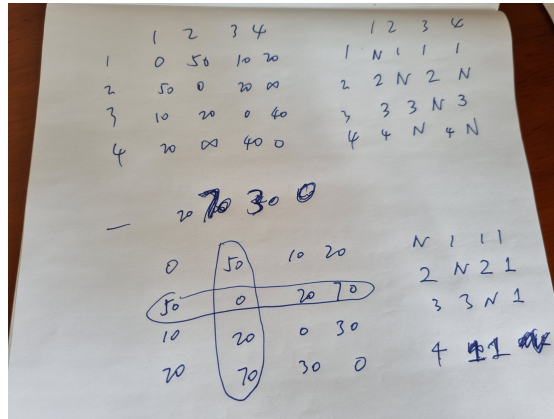 1 2 3 4
1 0 50 10 20
2 50 0 20 ∞
3 10 20 0 40
4 20 ∞ 40 0
1 2 3 4
1 N 1 1 1
2 2 N 2 N
3 3 3 N 3
4 4 N 4 N
— 20 70 30 0
0 50 10 20
50 0 20 70
10 20 0 30
20 70 30 0
N 1 1 1
2 N 2 1
3 3 N 1
4 1 1